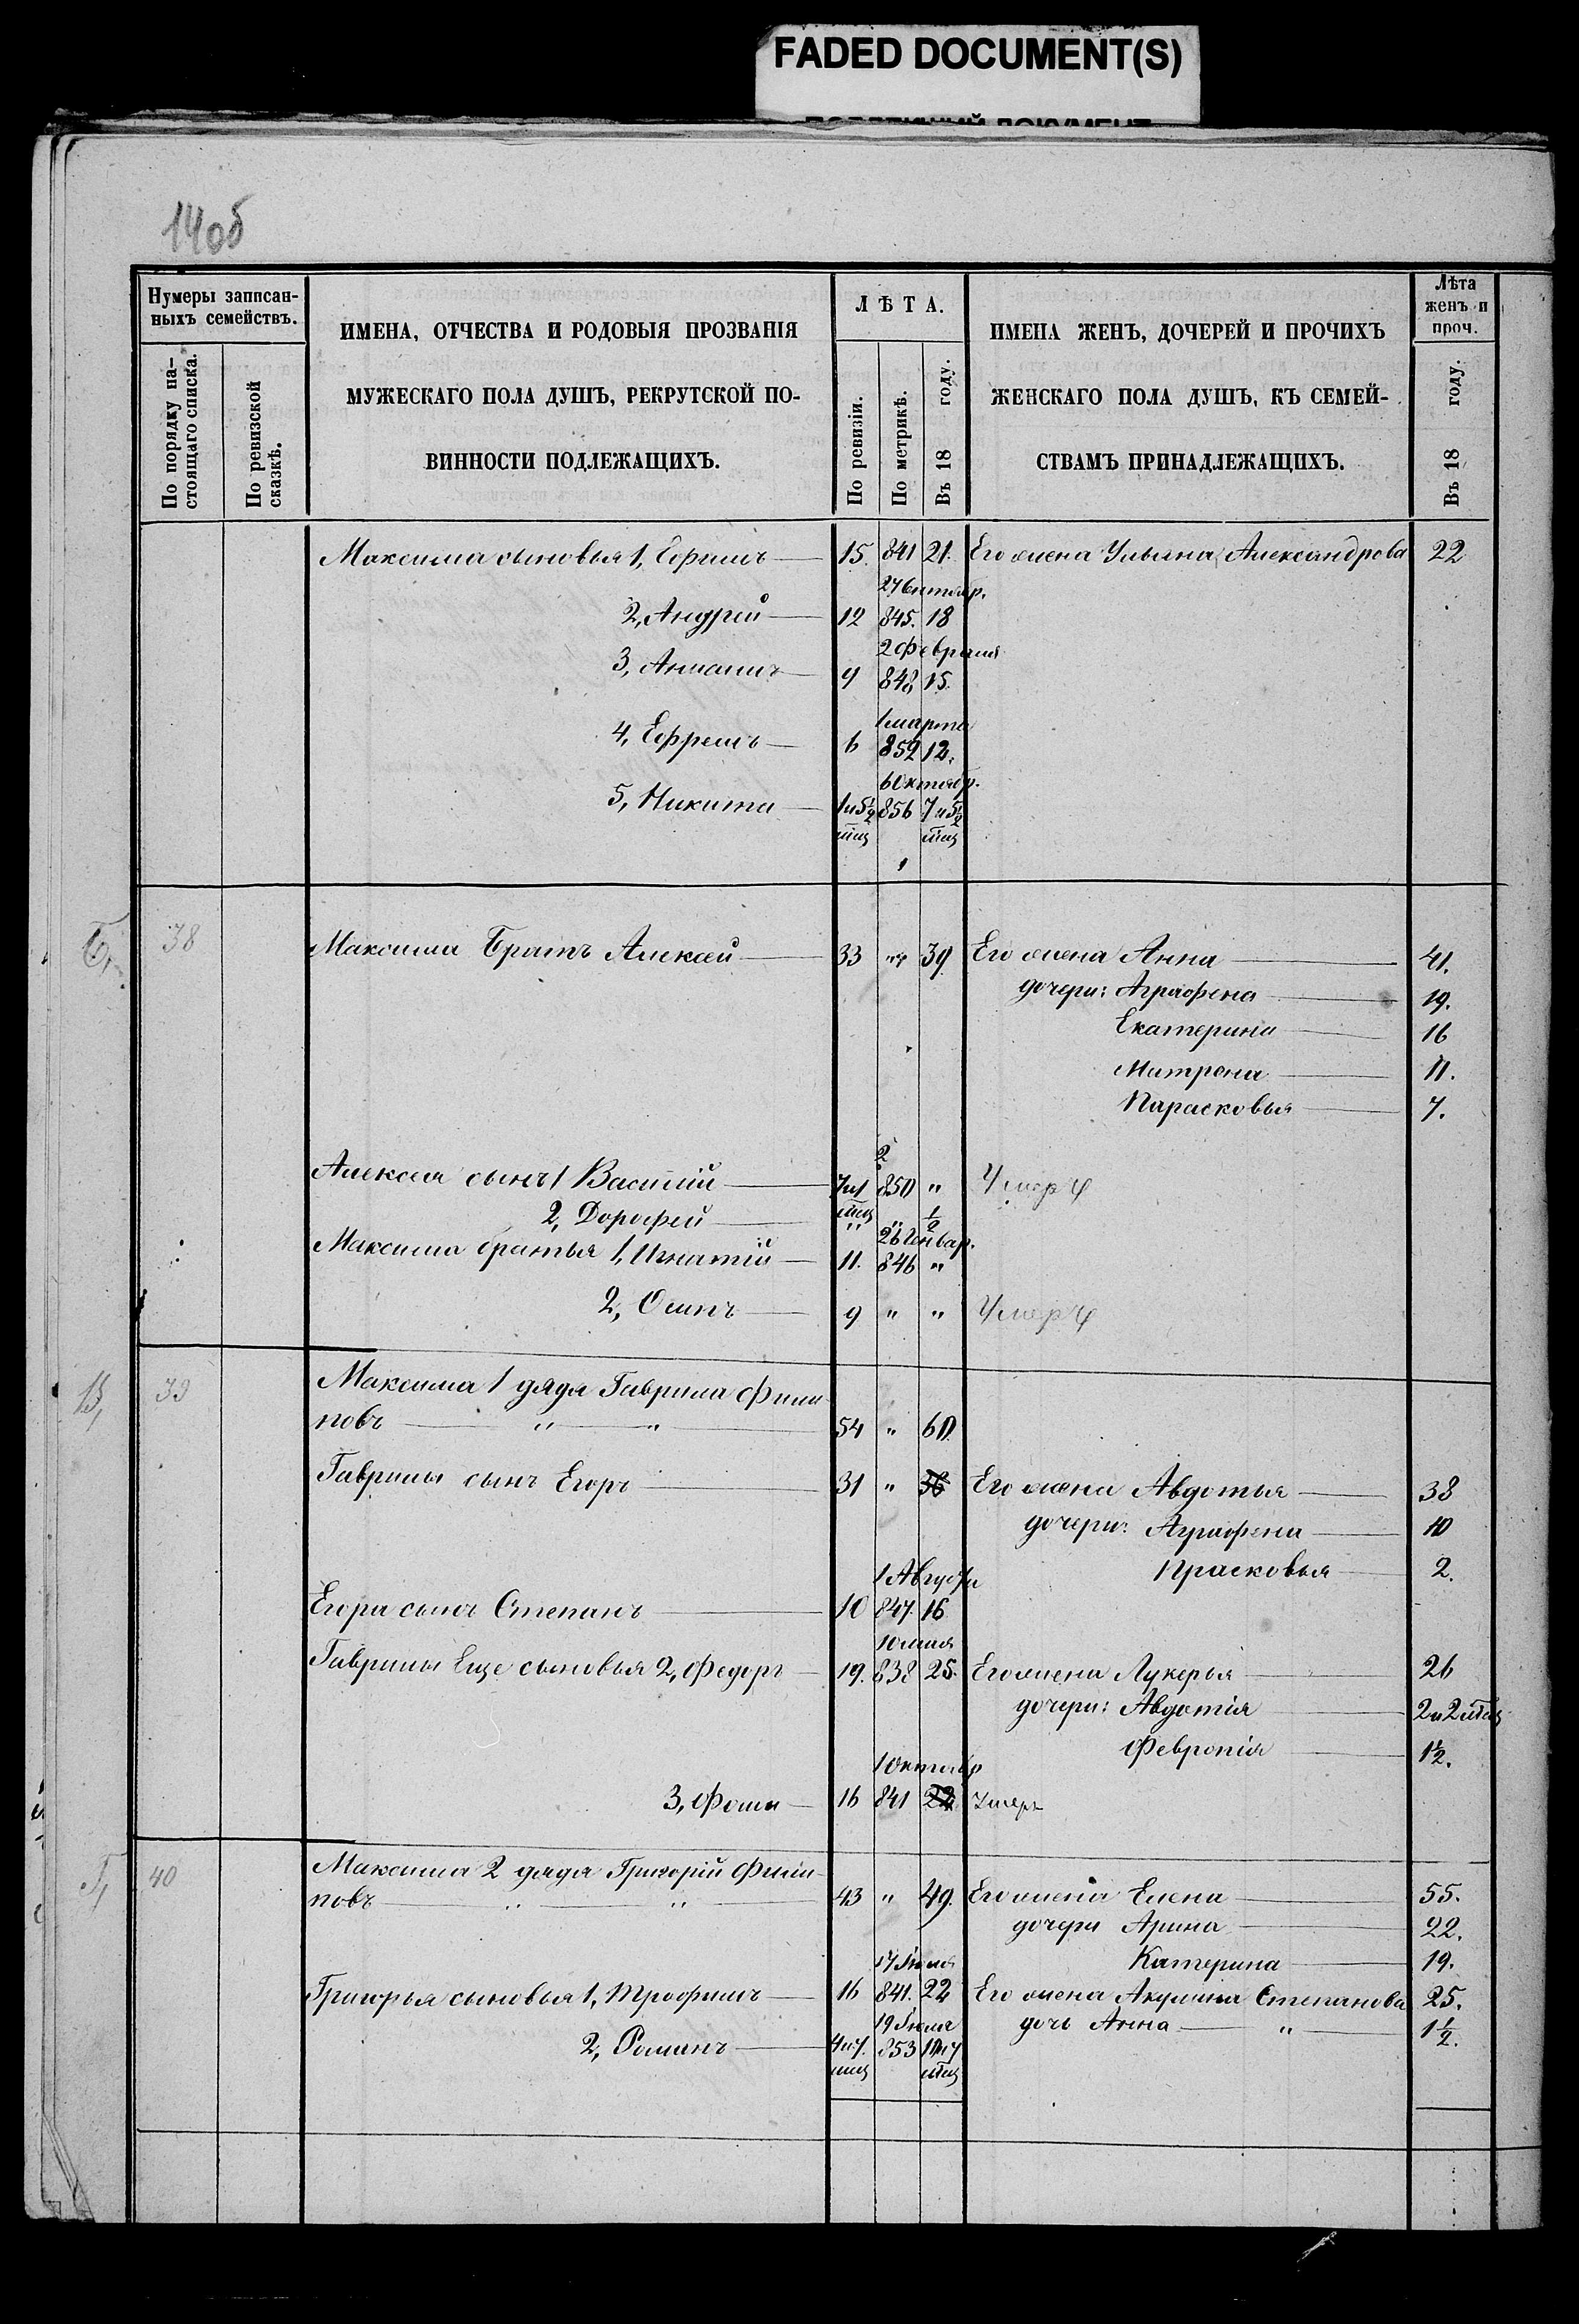 FADED DOCUMENT(S)
14об
Нумеры записанныхъ семействъ.
По порядку настоящаго списка.
По ревизской сказкѣ.
ИМЕНА, ОТЧЕСТВА И РОДОВЫЯ ПРОЗВАНІЯ
МУЖЕСКАГО ПОЛА ДУШЪ, РЕКРУТСКОЙ ПО-
ВИННОСТИ ПОДЛЕЖАЩИХЪ.
ЛѢТА.
По ревизіи.
По метрикѣ.
Въ 18 году.
ИМЕНА ЖЕНЪ, ДОЧЕРЕЙ И ПРОЧИХЪ
ЖЕНСКАГО ПОЛА ДУШЪ, КЪ СЕМЕЙ-
СТВАМЪ ПРИНАДЛЕЖАЩИХЪ.
Лѣта
женъ и
проч.
Въ 18 году.
Максима сыновья 1, 15. 841 21. Его жена Ульяна Александрова 22
2, Андрей 12 845. 18
2 Февраля
3, 9 848 15.
1 марта
4, Ефремъ 6 852 12.
6 Октябр.
5, Никита 1 и 5½ мѣц 856 7 и 5½ мѣц
Б, 38 Максима Братъ Алексѣй 33 " 39 Его жена Анна 41.
дочери: Аграфена 19.
Екатерина 16
Матрена 11.
Парасковья 7.
2
Алексѣя сынъ 1 Василій 7 и 1 мѣц 850 " Умеръ
2, Дорофей " " ½
26 Генвар.
Максима братья 1, Игнатій 11. 846 "
2, Осипъ 9 " " Умеръ
В, 39 Максима 1 дядя Гаврила Фили-
повъ " " 54 " 60.
Гаврилы сынъ Егоръ 31 " Его жена Авдотья 38
дочери: Аграфена 10
Прасковья 2.
1 Августа
Егора сынъ Степанъ 10 847. 16
10 мая
Гаврилы Еще сыновья 2, Федоръ 19. 838 25. Его жена Лукерья 26
дочери: Авдотія 2 и 2 мѣц
Февронія 1½.
1 Октябр
3, Фома 16 841 22 Умеръ
Г, 40 Максима 2 дядя Григорій Фили-
повъ " " 43 " 49. Его жена Елена 55.
дочери Арина 22.
Катерина 19.
Григорья сыновья 1, Трофимъ 16 841. 22 Его жена Акулина Степанова 25.
дочь Анна " 1½.
2, Романъ 4 и 7. мѣц 853 10 и 7 мѣц